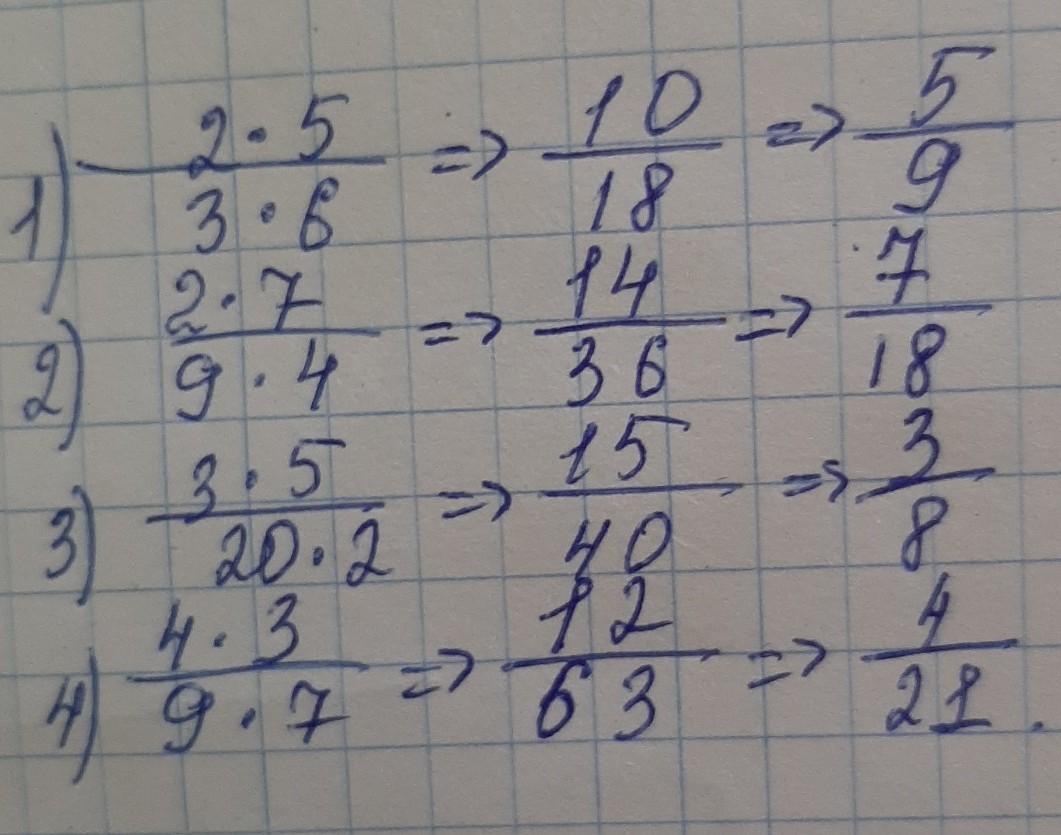 1) 2·5/3·6 => 10/18 => 5/9
2) 2·7/9·4 => 14/36 => 7/18
3) 3·5/20·2 => 15/40 => 3/8
4) 4·3/9·7 => 12/63 => 4/21.